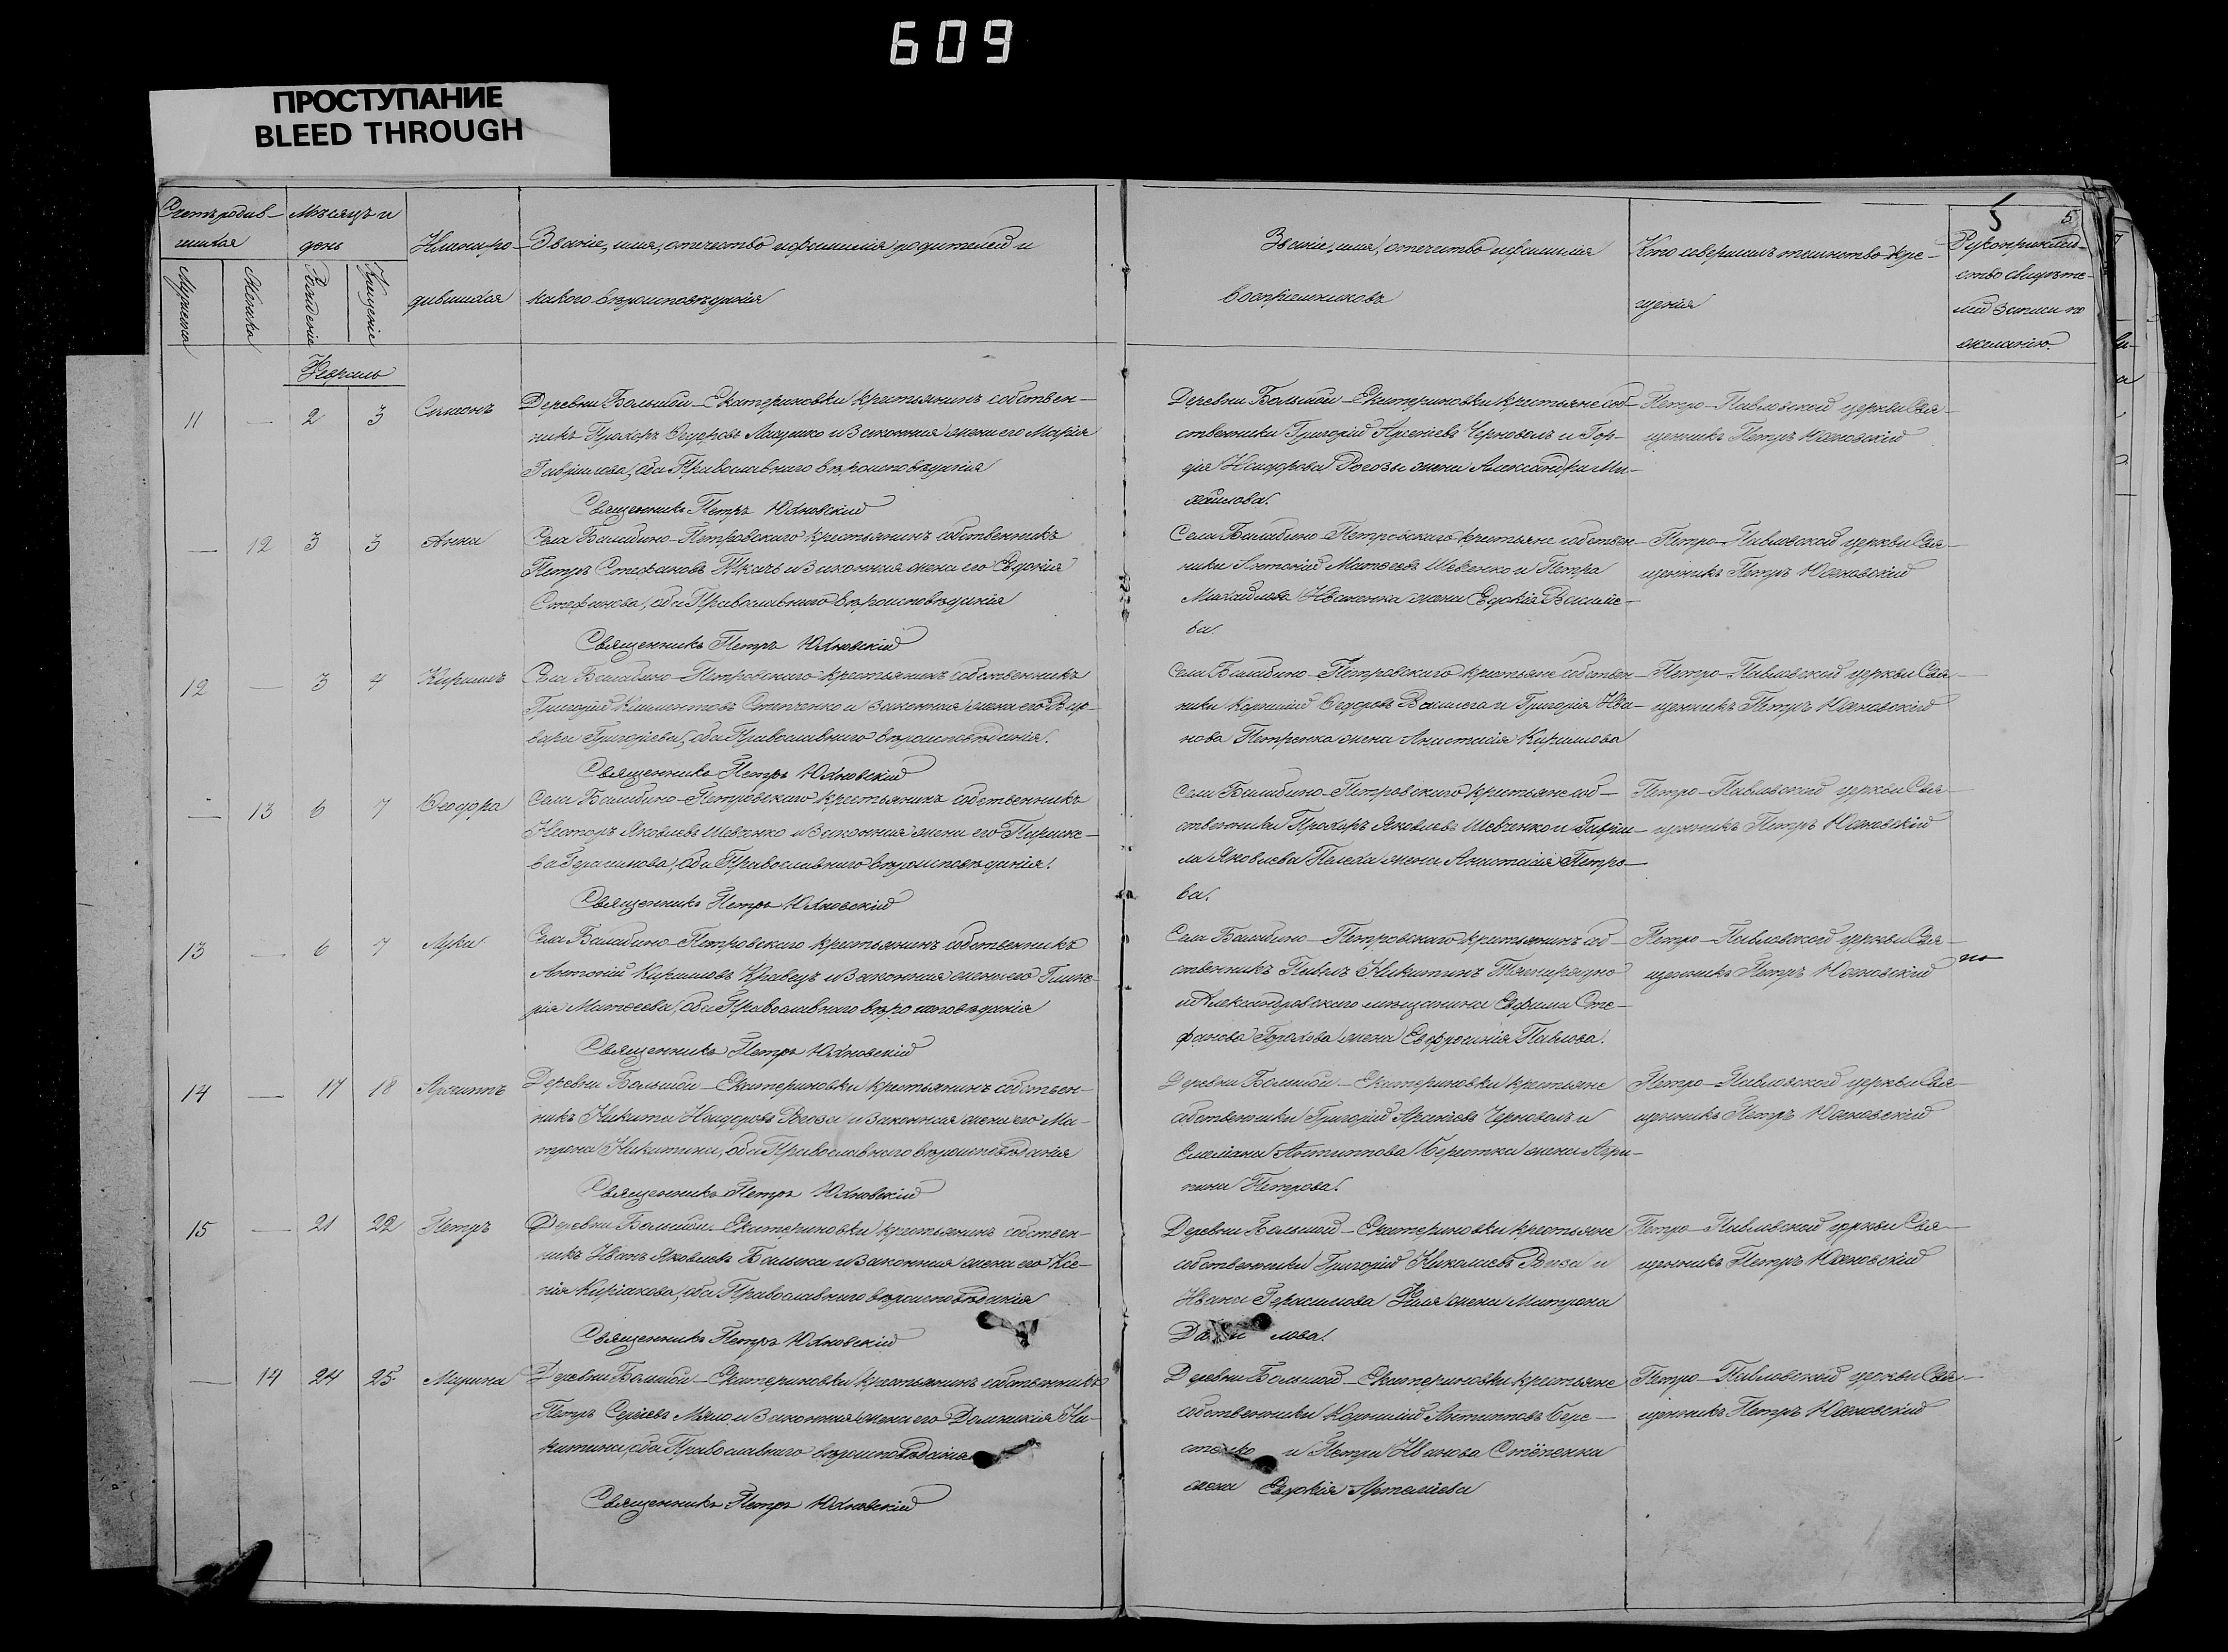 609
ПРОСТУПАНИЕ
BLEED THROUGH
5
5
Счетъ родив-
шихся
Мѣсяцъ и
день
Имена ро-
дившихся
Званіе, имя, отчество и фамилія родителей и
какого вѣроисповѣданія
Мужеска
Женска
Рожденіе
Крещеніе
Званіе, имя, отчество и фамилія
воспріемниковъ
Кто совершилъ таинство кре-
щенія
Рукоприклад-
ство свидѣте-
лей записи по
желанію.
Февраль
11 — 2 3 Симеонъ
Деревни Большой-Екатериновки крестьянинъ собствен-
никъ Прохоръ Ѳедоровъ и законная жена его Марія
Гаврилова, оба Православнаго вѣроисповѣданія
Священникъ Петръ Юхновскій
Деревни Большой-Екатериновки крестьяне соб-
ственники Григорій Арсеніевъ Черноволъ и Гор-
дія Исидорова Рогозы жена Александра Ми-
хайлова.
Петро-Павловской церкви Свя-
щенникъ Петръ Юхновскій
— 12 3 3 Анна
Села Балабино-Петровскаго крестьянинъ собственникъ
Петръ Стефановъ Ткачъ и законная жена его Евдокія
Стефанова, оба Православнаго вѣроисповѣданія
Священникъ Петръ Юхновскій
Села Балабино-Петровскаго крестьяне собствен-
ники Антоній Матѳеевъ Шевченко и Петра
Михайлова Иваненка жена Евдокія Василіе-
ва.
Петро-Павловской церкви Свя-
щенникъ Петръ Юхновскій
12 — 3 4 Кириллъ
Села Балабино-Петровскаго крестьянинъ собственникъ
Григорій Климентовъ Степченко и законная жена его Вар-
вара Григорьева, оба Православнаго вѣроисповѣданія.
Священникъ Петръ Юхновскій
Села Балабино-Петровскаго крестьяне собствен-
ники Корнилій Ѳедоровъ и Григорія Ива-
нова Петренка жена Анастасія Кириллова
Петро-Павловской церкви Свя-
щенникъ Петръ Юхновскій
— 13 6 7 Ѳеодора
Села Балабино-Петровскаго крестьянинъ собственникъ
Несторъ Яковлевъ Шевченко и законная жена его Параске-
ва Герасимова, оба Православнаго вѣроисповѣданія.
Священникъ Петръ Юхновскій
Села Балабино-Петровскаго крестьяне соб-
ственники Прохоръ Яковлевъ Шевченко и Гаврии-
ла Яковлева жена Анастасія Петро-
ва.
Петро-Павловской церкви Свя-
щенникъ Петръ Юхновскій
13 — 6 7 Лука
Села Балабино-Петровскаго крестьянинъ собственникъ
Антоній Кирилловъ Кравецъ и законная жена его Глике-
рія Матѳеева, оба Православнаго вѣроисповѣданія
Священникъ Петръ Юхновскій
Села Балабино-Петровскаго крестьянинъ соб-
ственникъ Павелъ Никитинъ
и Александровскаго мѣщанина Ефима Сте-
фанова Горохова жена Евфросинія Павлова.
Петро-Павловской церкви Свя-
щенникъ Петръ Юхновскій
14 — 17 18 Архиппъ
Деревни Большой-Екатериновки крестьянинъ собствен-
никъ Никита Исидоровъ Рогоза и законная жена его Ма-
трона Никитина, оба Православнаго вѣроисповѣданія
Священникъ Петръ Юхновскій
Деревни Большой-Екатериновки крестьяне
собственники Григорій Арсеніевъ Черноволъ и
Емеліана Антиппова Берестка жена Агри-
пина Петрова.
Петро-Павловской церкви Свя-
щенникъ Петръ Юхновскій
15 — 21 22 Петръ
Деревни Большой-Екатериновки крестьянинъ собствен-
никъ Иванъ Яковлевъ и законная жена его Ксе-
нія Киріакова, оба Православнаго вѣроисповѣданія
Священникъ Петръ Юхновскій
Деревни Большой-Екатериновки крестьяне
собственники Григорій Николаевъ Рогоза и
Ивана Герасимова жена Матрона
Петро-Павловской церкви Свя-
щенникъ Петръ Юхновскій
— 14 24 25 Марина
Деревни Большой-Екатериновки крестьянинъ собственникъ
Петръ Сергіевъ и законная жена его Домникія Ни-
китина, оба Православнаго вѣроисповѣданія
Священникъ Петръ Юхновскій
Деревни Большой-Екатериновки крестьяне
собственники Корнилій Антипповъ Бере-
и Петра Иванова
жена Евдокія Артеміева
Петро-Павловской церкви Свя-
щенникъ Петръ Юхновскій